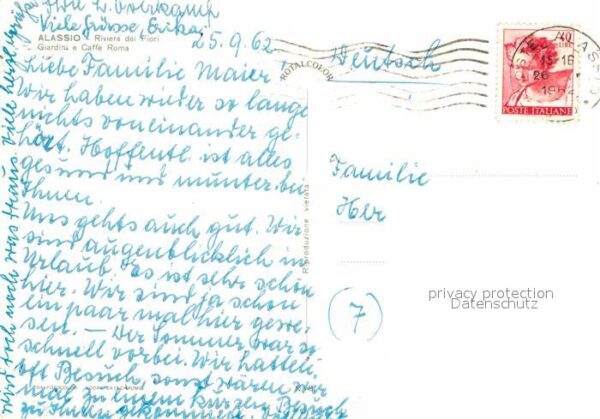 ALASSIO - Riviera dei Fiori
Giardini e Caffè Roma
25.9.62
Liebe Familie Maier
Wir haben wieder so lange
nichts voneinander ge-
hört. Hoffentl. ist alles
gesund und munter bei
Ihnen.
Uns gehts auch gut. Wir
sind augenblicklich in
Urlaub. Es ist sehr schön
hier. Wir sind ja schon
ein paar mal hier gewe-
sen. – Der Sommer war so
schnell vorbei. Wir hatten
oft Besuch, sonst wären wir
mal zu einem kurzen Besuch
zu Ihnen gekommen.
wird doch noch was draus. Viele herzl.
Viele Grüsse, Erika
ROTALCOLOR
Riproduzione vietata
Deutsch
Familie
Her
(7)
40
LIRE
POSTE ITALIANE
ALASSIO
15-16
26
1962
privacy protection
Datenschutz